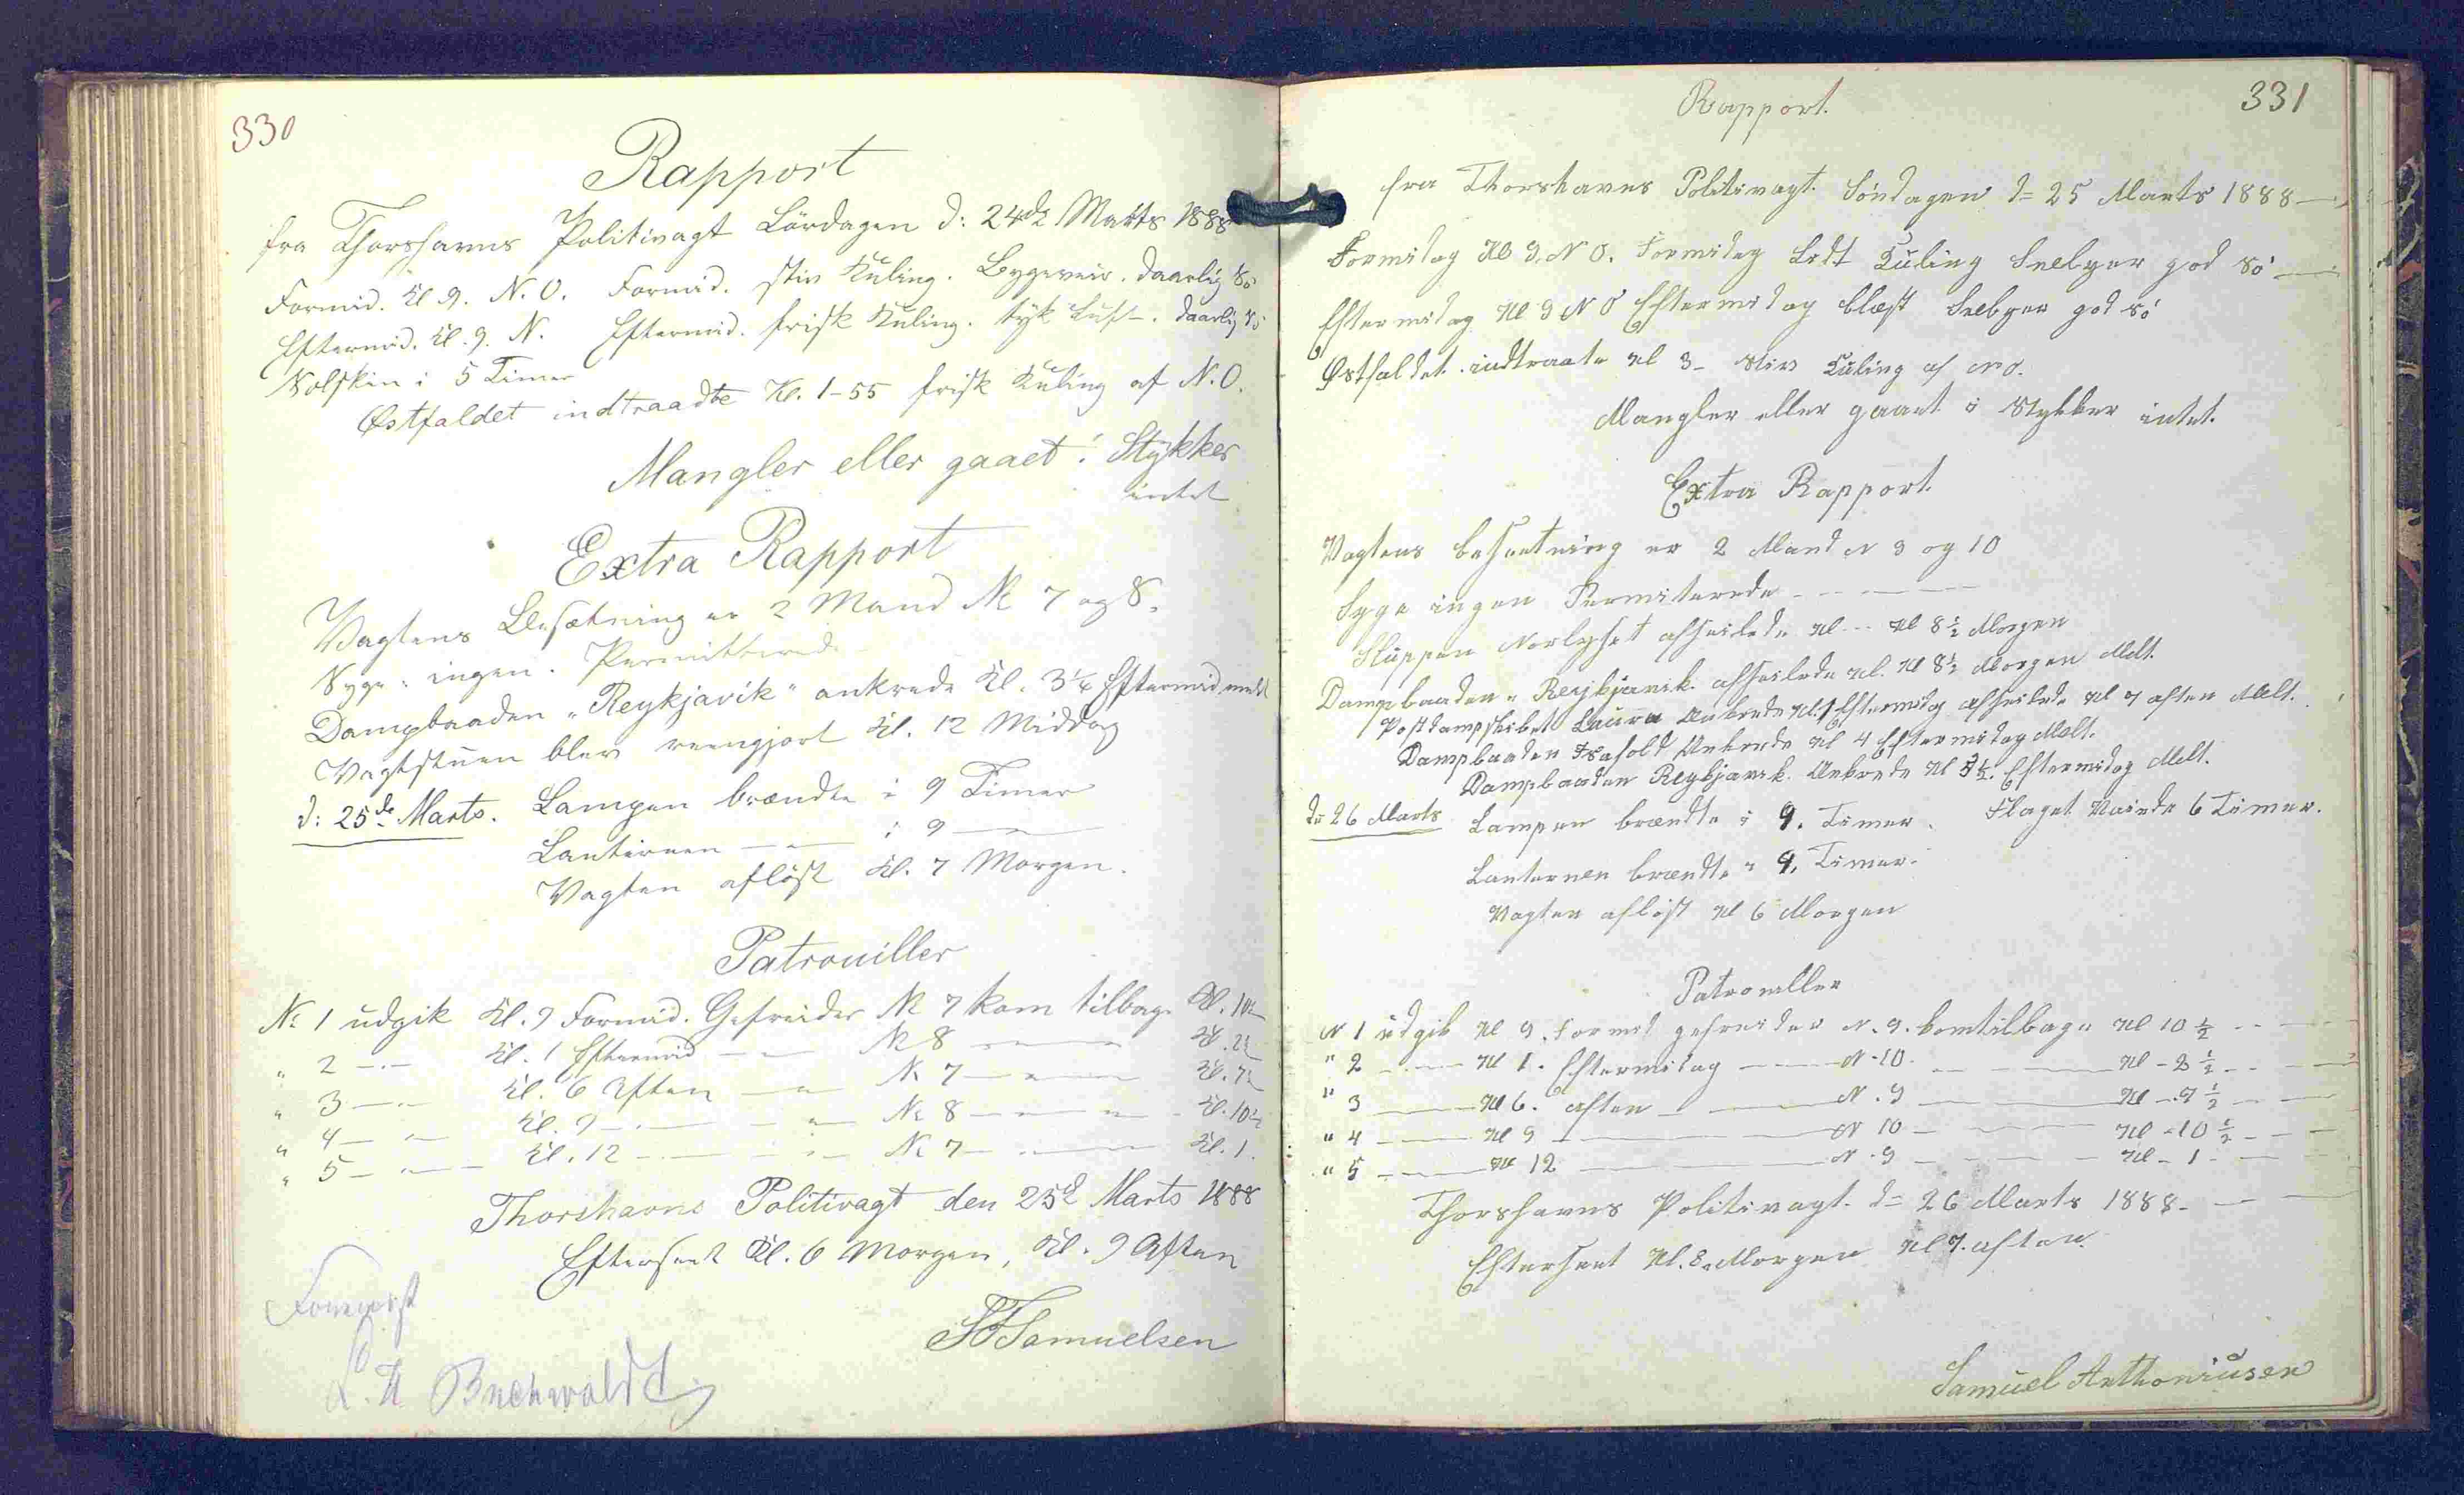 330
Rapport
fra Thorshavns Politivagt Lördagen d: 24de Marts 1888
Formid. Kl 9. N.O. Formid. stiv Kuling. Bygeveir. daarlig Sö
Eftermid. Kl. 9. N. Eftermid. frisk Kuling. tyk Luft. daarlig Sö
Solskin i 5 Timer
Østfaldet indtraadte Kl. 1-55 frisk Kuling af N.O.
Mangler eller gaaet i Stykker
intet
Extra Rapport
Vagtens Besætning er 2 Mand № 7 og 8.
Syge: ingen. Permitterede
Dampbaaden "Reykjavik" ankrede Kl. 3¼ Eftermid meldt
Vagtstuen blev reengjort Kl. 12 Middag
d: 25de Marts. Lampen brændte i 9 Timer
Lanternen — " — i 9 —
Vagten aflöst Kl. 7 Morgen.
Patrouiller
№ 1 udgik Kl. 9 Formid. Gefreider № 7 kom tilbage Kl. 10½
" 2 — " — Kl. 1 Eftermid — " — № 8 — " — Kl. 2½
" 3 — " — Kl. 6 Aften — " — № 7 — " — Kl. 7½
" 4 — " — Kl. 9 — " — № 8 — " — Kl. 10½
" 5 — " — Kl. 12 — " — № 7 — " — Kl. 1.
Thorshavns Politivagt den 25de Marts 1888
Efterseet Kl. 6 Morgen, Kl. 9 Aften
Samuelsen
Buchwaldt
331
Rapport.
fra Thorshavns Politivagt. Söndagen d= 25 Marts 1888
Formidag Kl 9. N O. Formidag Ledt Kuling Snebyer god Sö
Eftermidag Kl 9 N O Eftermidag blæst Snebyer god Sö
Østfaldet indtraate Kl 3 - Stiv Kuling af NO.
Mangler eller gaaet i Stykker intet.
Extra Rapport.
Vagtens besætning er 2 Mand N 9 og 10
Syge ingen Permiterede - - - —
Sluppen Norlyset afseilede Kl -- Kl 8½ Morgen
Dampbaaden Reykjavik. afseilede Kl. Kl 8½ Morgen Melt.
Postdampskibet Laura Ankrede Kl. 1 Eftermidag afseilede Kl 7 aften Melt.
Dampbaaden Isafold Ankrede Kl 4 Eftermidag Melt.
Dampbaaden Reykjavik. Ankrede Kl 5½. Eftermidag Melt.
d= 26 Marts Lampen brændte i 9. Timer. Flaget Vaiede 6 Timer.
Lanternen brændte " 9. Timer.
Vagten aflöst Kl 6 Morgen
Patrouller
N 1 udgik Kl 9. Formid gefreider N. 9. komtilbage Kl 10½
" 2 — Kl 1. Eftermidag — N 10 — Kl - 2½
" 3 — Kl 6. aften — N. 9 — Kl - 7½
" 4 — Kl 9 — N 10 — Kl - 10½
" 5 — Kl 12 — N. 9 — Kl - 1
Thorshavns Politivagt. d= 26 Marts 1888.
Efterseet Kl. 8. Morgen Kl 7. aften.
Samuel Anthoniusen